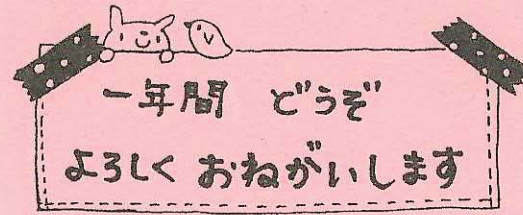 一年間 どうぞ
よろしく おねがいします